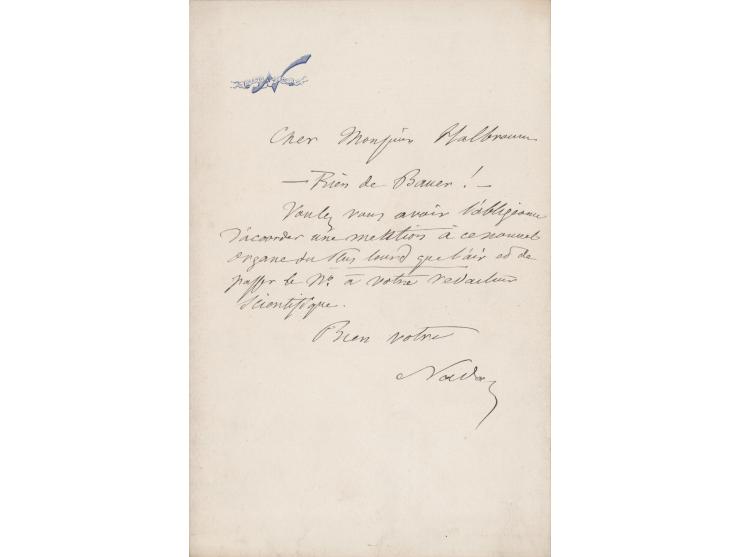 Cher Monsieur Halbronn
— Rien de Bauer ! —
Voulez vous avoir l'obligeance
d'accorder une mention à ce nouvel
organe du Plus lourd que l'air et de
passer le No. à votre rédacteur
scientifique.
Bien votre
Nadar